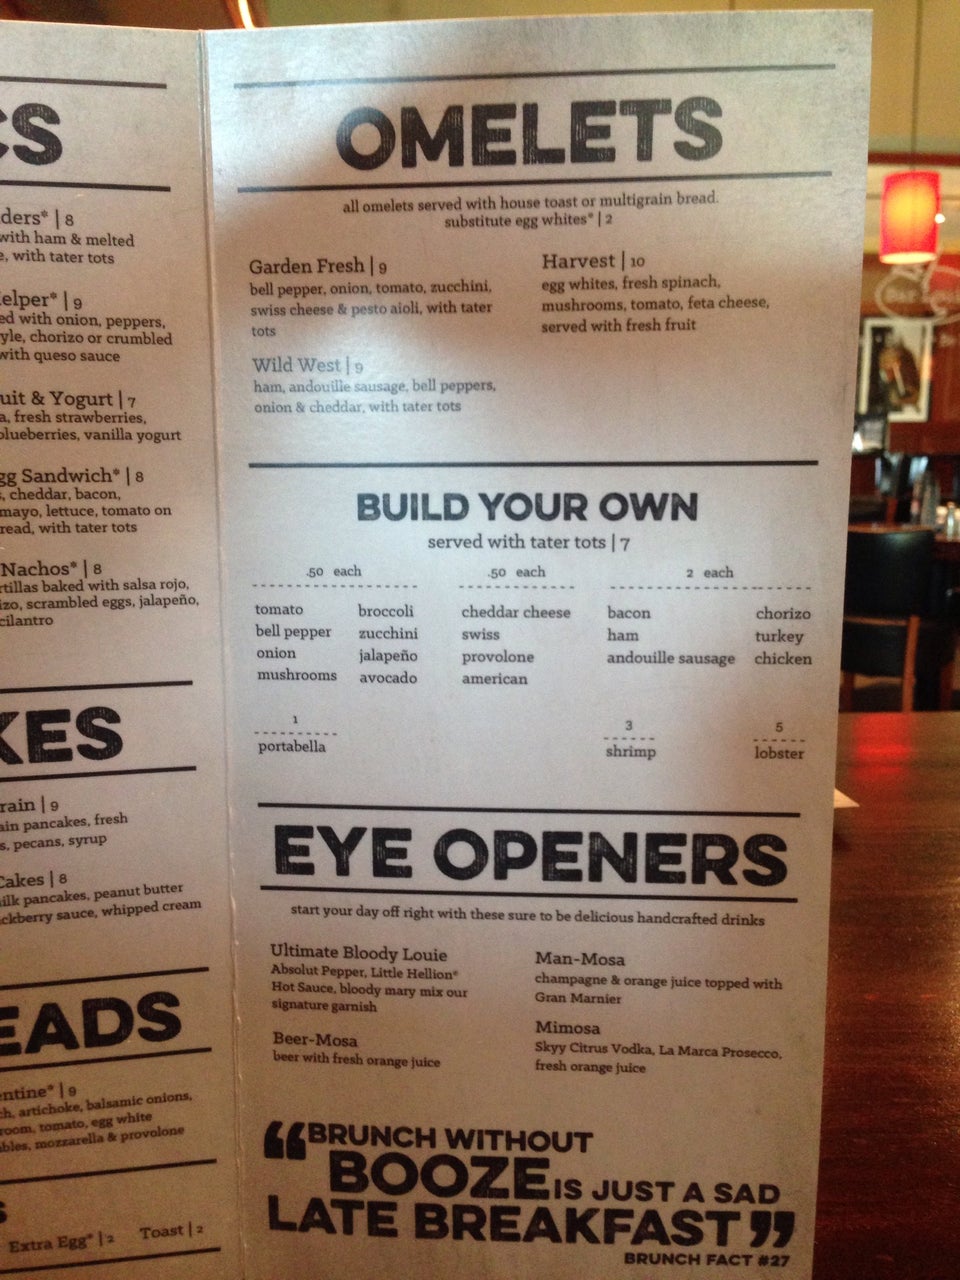 CS
ders* | 8
with ham & melted
e, with tater tots
elper* | 9
ed with onion, peppers,
yle, chorizo or crumbled
with queso sauce
uit & Yogurt | 7
a, fresh strawberries,
blueberries, vanilla yogurt
gg Sandwich* | 8
s, cheddar, bacon,
mayo, lettuce, tomato on
read, with tater tots
Nachos* | 8
rtillas baked with salsa rojo,
izo, scrambled eggs, jalapeño,
cilantro
KES
rain | 9
ain pancakes, fresh
s, pecans, syrup
Cakes | 8
ilk pancakes, peanut butter
ckberry sauce, whipped cream
EADS
entine* | 9
ch, artichoke, balsamic onions,
room, tomato, egg white
bles, mozzarella & provolone
S
Extra Egg* | 2 Toast | 2
OMELETS
all omelets served with house toast or multigrain bread.
substitute egg whites* | 2
Garden Fresh | 9
bell pepper, onion, tomato, zucchini,
swiss cheese & pesto aioli, with tater
tots
Wild West | 9
ham, andouille sausage, bell peppers,
onion & cheddar, with tater tots
Harvest | 10
egg whites, fresh spinach,
mushrooms, tomato, feta cheese,
served with fresh fruit
BUILD YOUR OWN
served with tater tots | 7
.50 each .50 each 2 each
tomato broccoli cheddar cheese bacon chorizo
bell pepper zucchini swiss ham turkey
onion jalapeño provolone andouille sausage chicken
mushrooms avocado american
1 3 5
portabella shrimp lobster
EYE OPENERS
start your day off right with these sure to be delicious handcrafted drinks
Ultimate Bloody Louie
Absolut Pepper, Little Hellion*
Hot Sauce, bloody mary mix our
signature garnish
Beer-Mosa
beer with fresh orange juice
Man-Mosa
champagne & orange juice topped with
Gran Marnier
Mimosa
Skyy Citrus Vodka, La Marca Prosecco,
fresh orange juice
“BRUNCH WITHOUT
BOOZE IS JUST A SAD
LATE BREAKFAST”
BRUNCH FACT #27